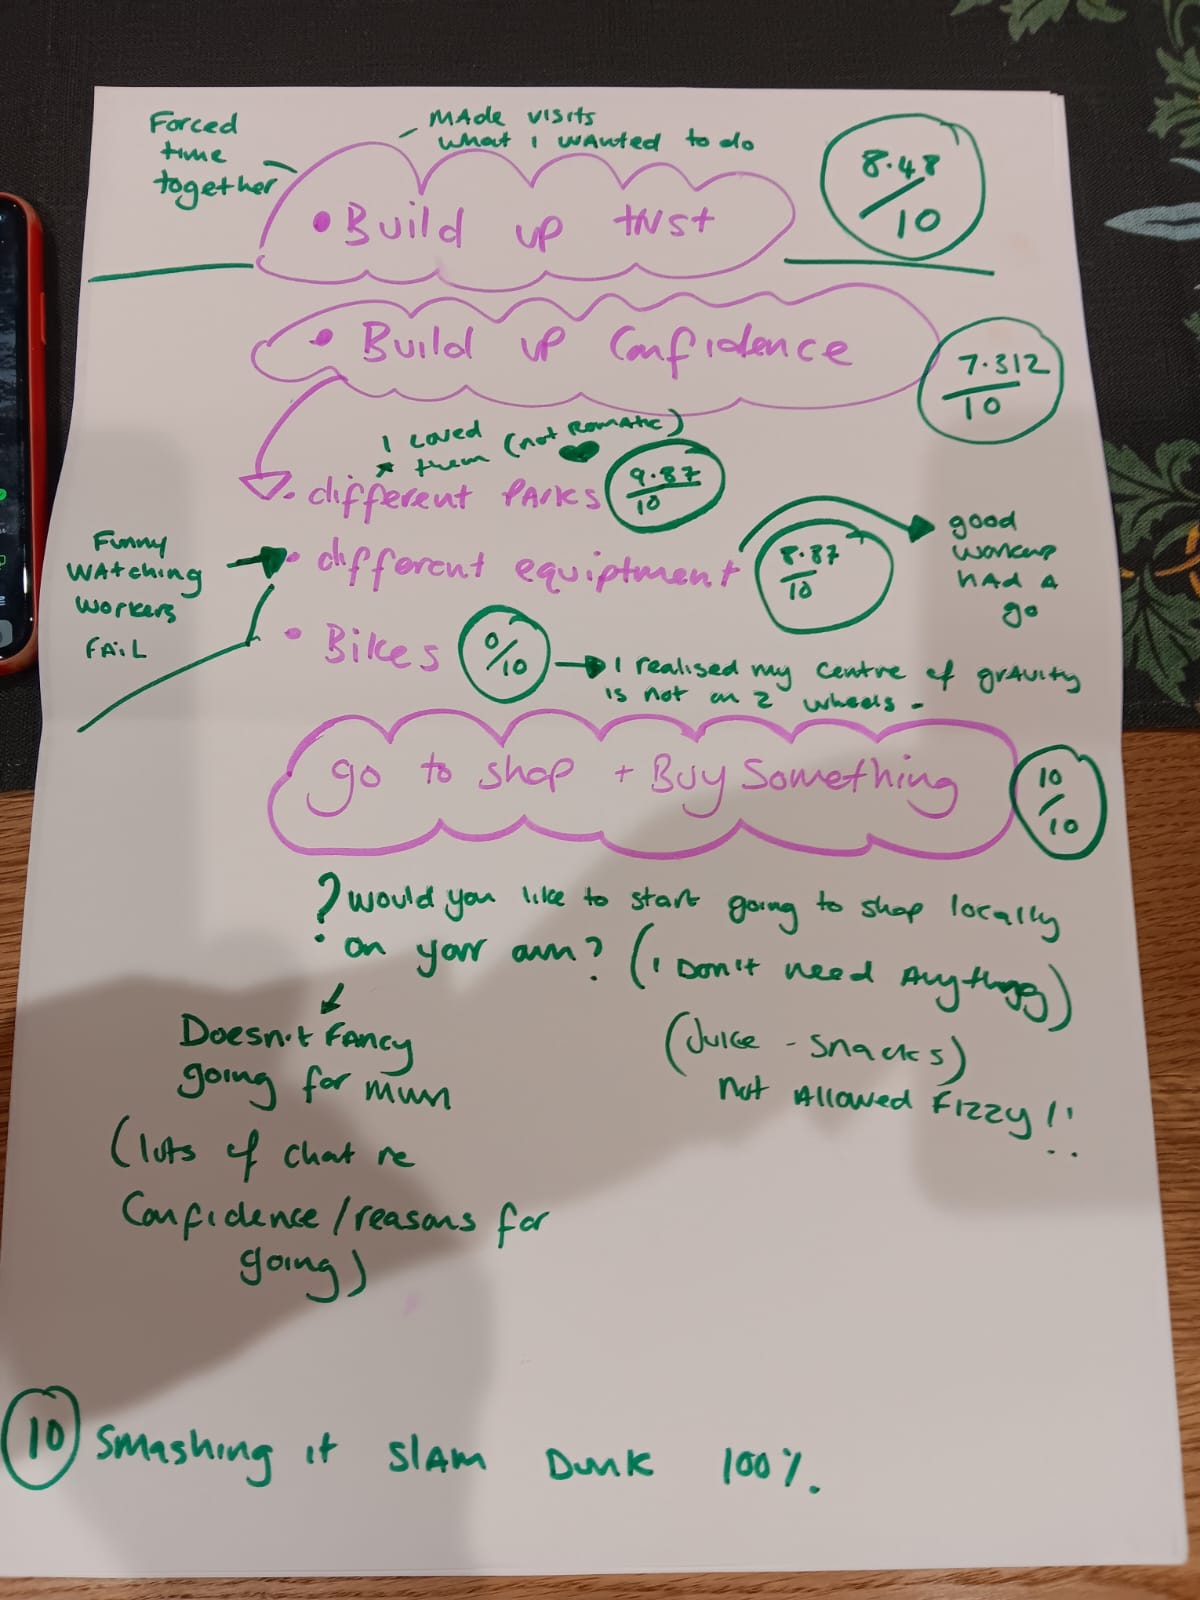 Forced
time
together
Made visits
what I wanted to do
8.48
/
10
• Build up trust
• Build up Confidence
7.312
10
I loved
* them (not Romatic)
• different Parks
9.87
10
Funny
watching
workers
FAIL
• different equiptment
8.87
10
good
workers
had a
go
• Bikes
0/10
I realised my centre of gravity
is not on 2 wheels.
go to shop + Buy Something
10
/
10
? would you like to start going to shop locally
on your own? (I Don't need Anything)
Doesn't FANCY
going for mum
(Juice - Snacks)
Not Allowed FIZZY!!
(lots of chat re
Confidence/reasons for
going)
10 Smashing it Slam Dunk 100%.